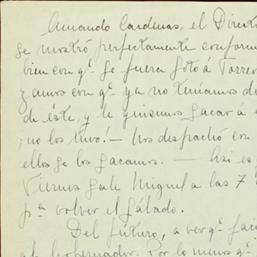 Amando Cardenas, el Direct
se mostró perfectamente conform
bien con q. se fuera Soto á Torre
zamos con q. ya no teníamos di
de éste, y le quisimos sacar á e
¡no los tuvo! — Nos despachó con
ellos se los sacamos. — Así es
Viernes sale Miguel a las 7
pª volver el Sábado.
Del futuro, a ver q. pa
el Gobernador. Por lo menos q.